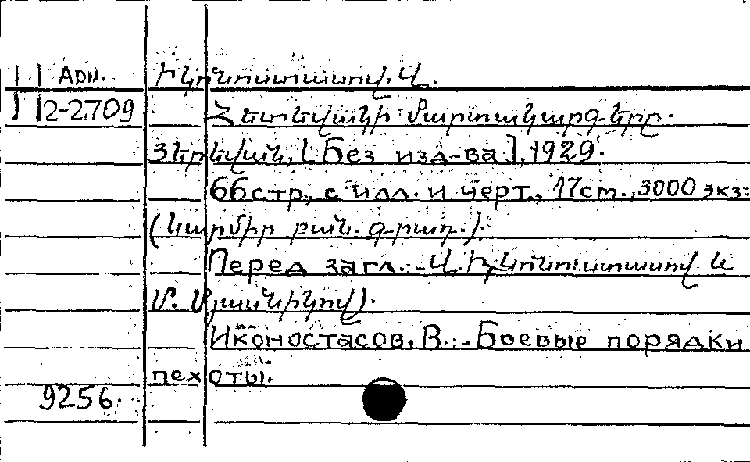 Арм. Իկոնոստասով, Վ.
2-2709 Հետևակի մարտակարգերը.
Յերևան, [Без изд-ва], 1929.
66стр., с илл. и черт., 17см., 3000 экз.
(Կարմիր բան. գ-րադ.).
Перед загл.:-Վ. Իկոնոստասով և
Մ.
Иконостасов, В.:-Боевые порядки
пехоты.
9256.